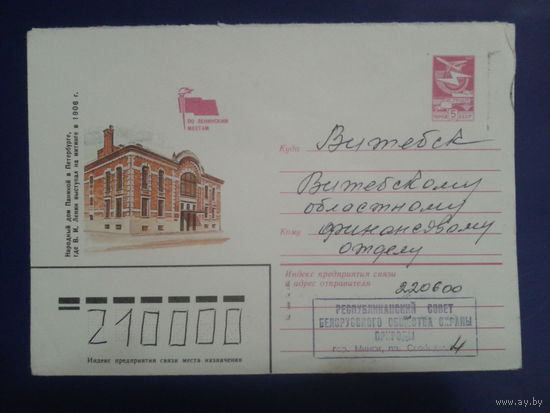 Народный дом Паниной в Петербурге,
где В. И. Ленин выступал на митинге в 1906 г.
ПО ЛЕНИНСКИМ
МЕСТАМ
ПОЧТА 5 СССР
Куда Витебск
Витебскому
областному
Кому финансовому
отделу
Индекс предприятия связи
и адрес отправителя
220600
РЕСПУБЛИКАНСКИЙ СОВЕТ
БЕЛОРУССКОГО ОБЩЕСТВА ОХРАНЫ
ПРИРОДЫ
гор. Минск, пл. 4
210000
Индекс предприятия связи места назначения
www.ay.by